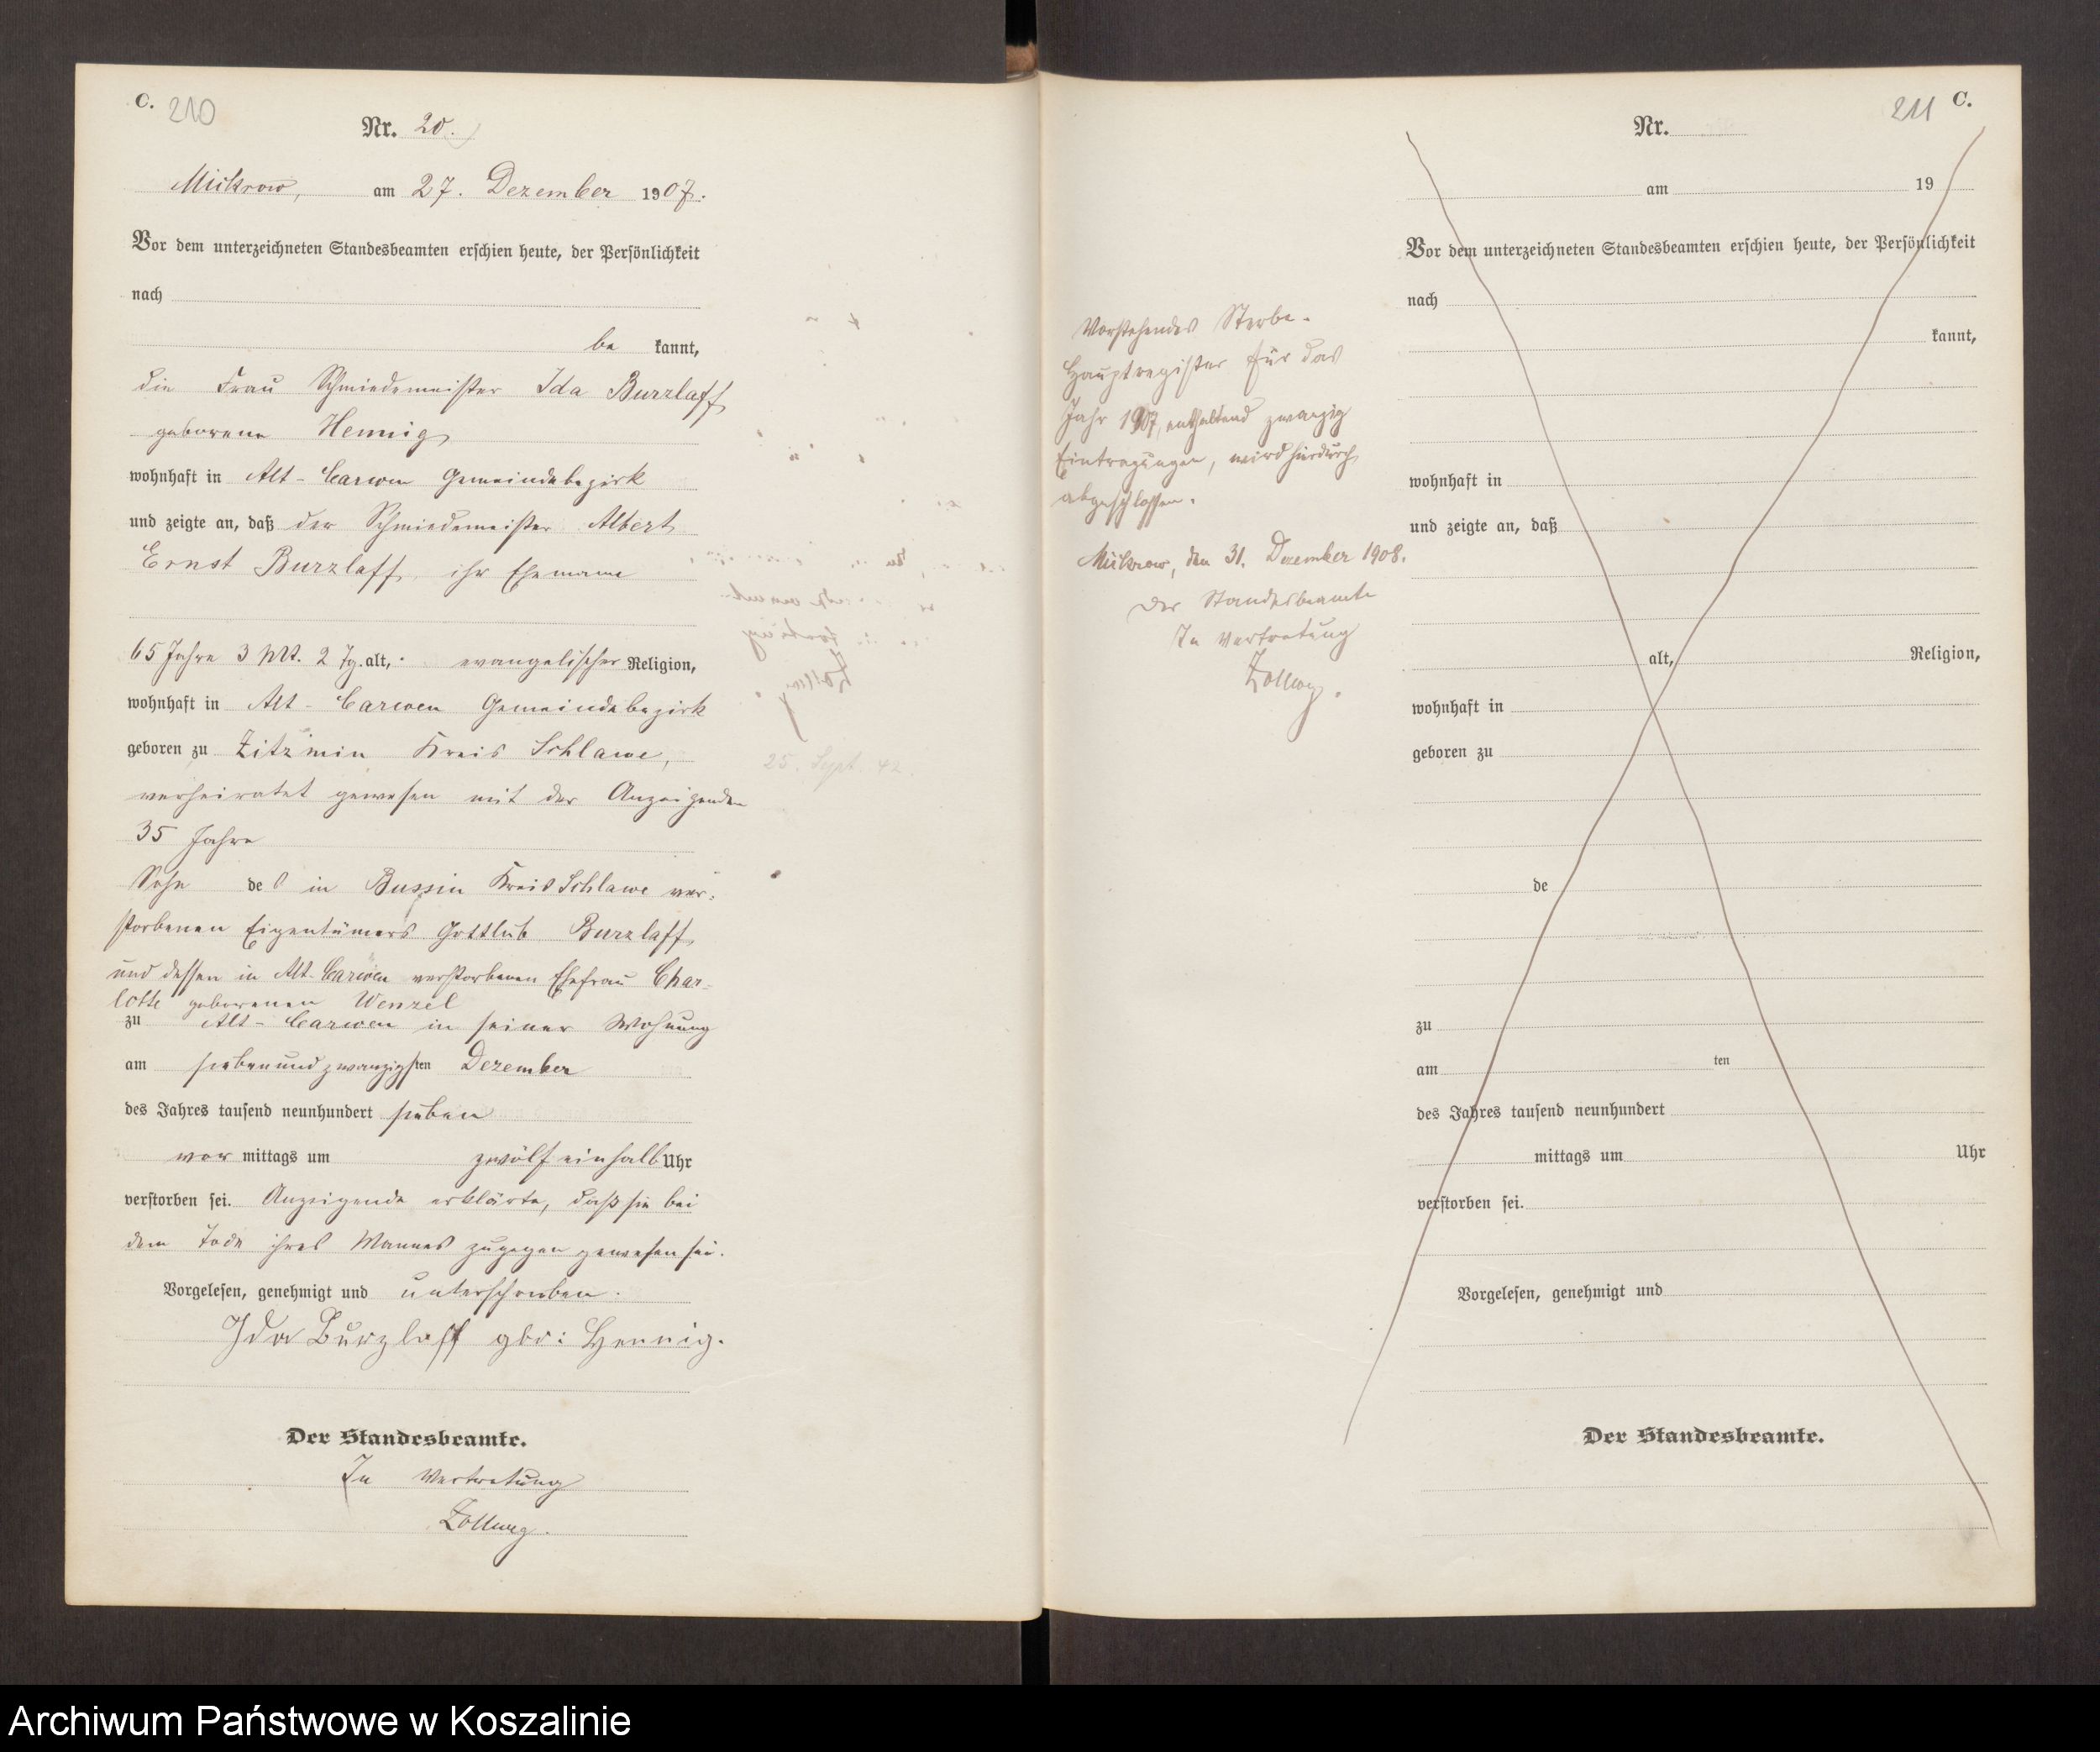 C. 210
Nr. 20.
Mickrow, am 27. Dezember 1907.
Vor dem unterzeichneten Standesbeamten erschien heute, der Persönlichkeit
nach
be kannt,
die Frau Schmiedemeister Ida Burzlaff
geborene Hennig
wohnhaft in Alt-Carwen Gemeindebezirk
und zeigte an, daß der Schmiedemeister Albert
Ernst Burzlaff, ihr Ehemann
65 Jahre 3 Mt. 2 Tg. alt, evangelischer Religion,
wohnhaft in Alt-Carwen Gemeindebezirk
geboren zu Zitzmin Kreis Schlawe,
verheiratet gewesen mit der Anzeigenden
35 Jahre
Sohn des in Bussin Kreis Schlawe ver-
storbenen Eigentümers Gottlieb Burzlaff
und dessen in Alt-Carwen verstorbenen Ehefrau Char-
lotte geborenen Wenzel
zu Alt-Carwen in seiner Wohnung
am siebenundzwanzigsten Dezember
des Jahres tausend neunhundert sieben
vor mittags um zwölf einhalb Uhr
verstorben sei. Anzeigende erklärte, daß sie bei
dem Tode ihres Mannes zugegen gewesen sei.
Vorgelesen, genehmigt und unterschrieben.
Ida Burzlaff geb: Hennig.
Der Standesbeamte.
In Vertretung
Zollweg.
25. Sept. 42.
Vorstehendes Sterbe-
Hauptregister für das
Jahr 1907, enthaltend zwanzig
Eintragungen, wird hierdurch
abgeschlossen.
Mickrow, den 31. Dezember 1908.
Der Standesbeamte
In Vertretung
Zollweg.
211 C.
Nr.
am 19
Vor dem unterzeichneten Standesbeamten erschien heute, der Persönlichkeit
nach
kannt,
wohnhaft in
und zeigte an, daß
alt, Religion,
wohnhaft in
geboren zu
de
zu
am ten
des Jahres tausend neunhundert
mittags um Uhr
verstorben sei.
Vorgelesen, genehmigt und
Der Standesbeamte.
Archiwum Państwowe w Koszalinie